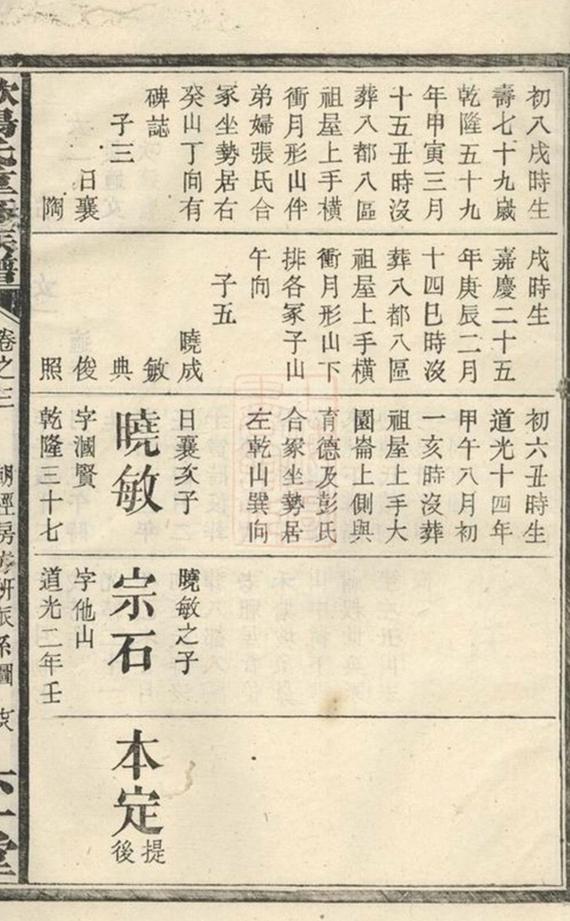 初八戌時生
壽七十九歲
乾隆五十九
年甲寅三月
十五丑時沒
葬八都八區
祖屋上手橫
衝月形山伴
弟婦張氏合
冢坐勢居右
癸山丁向有
碑誌
子三
日襄
陶
戌時生
嘉慶二十五
年庚辰二月
十四巳時沒
葬八都八區
祖屋上手橫
衝月形山下
排各冢子山
午向
子五
曉成
敏
典
俊
照
初六丑時生
道光十四年
甲午八月初
一亥時沒葬
祖屋上手大
園崙上側與
育德及彭氏
合冢坐勢居
左乾山巽向
日襄次子
曉敏
字漍賢
乾隆三十七
曉敏之子
宗石
字他山
道光二年壬
本定
提
後
卷之三